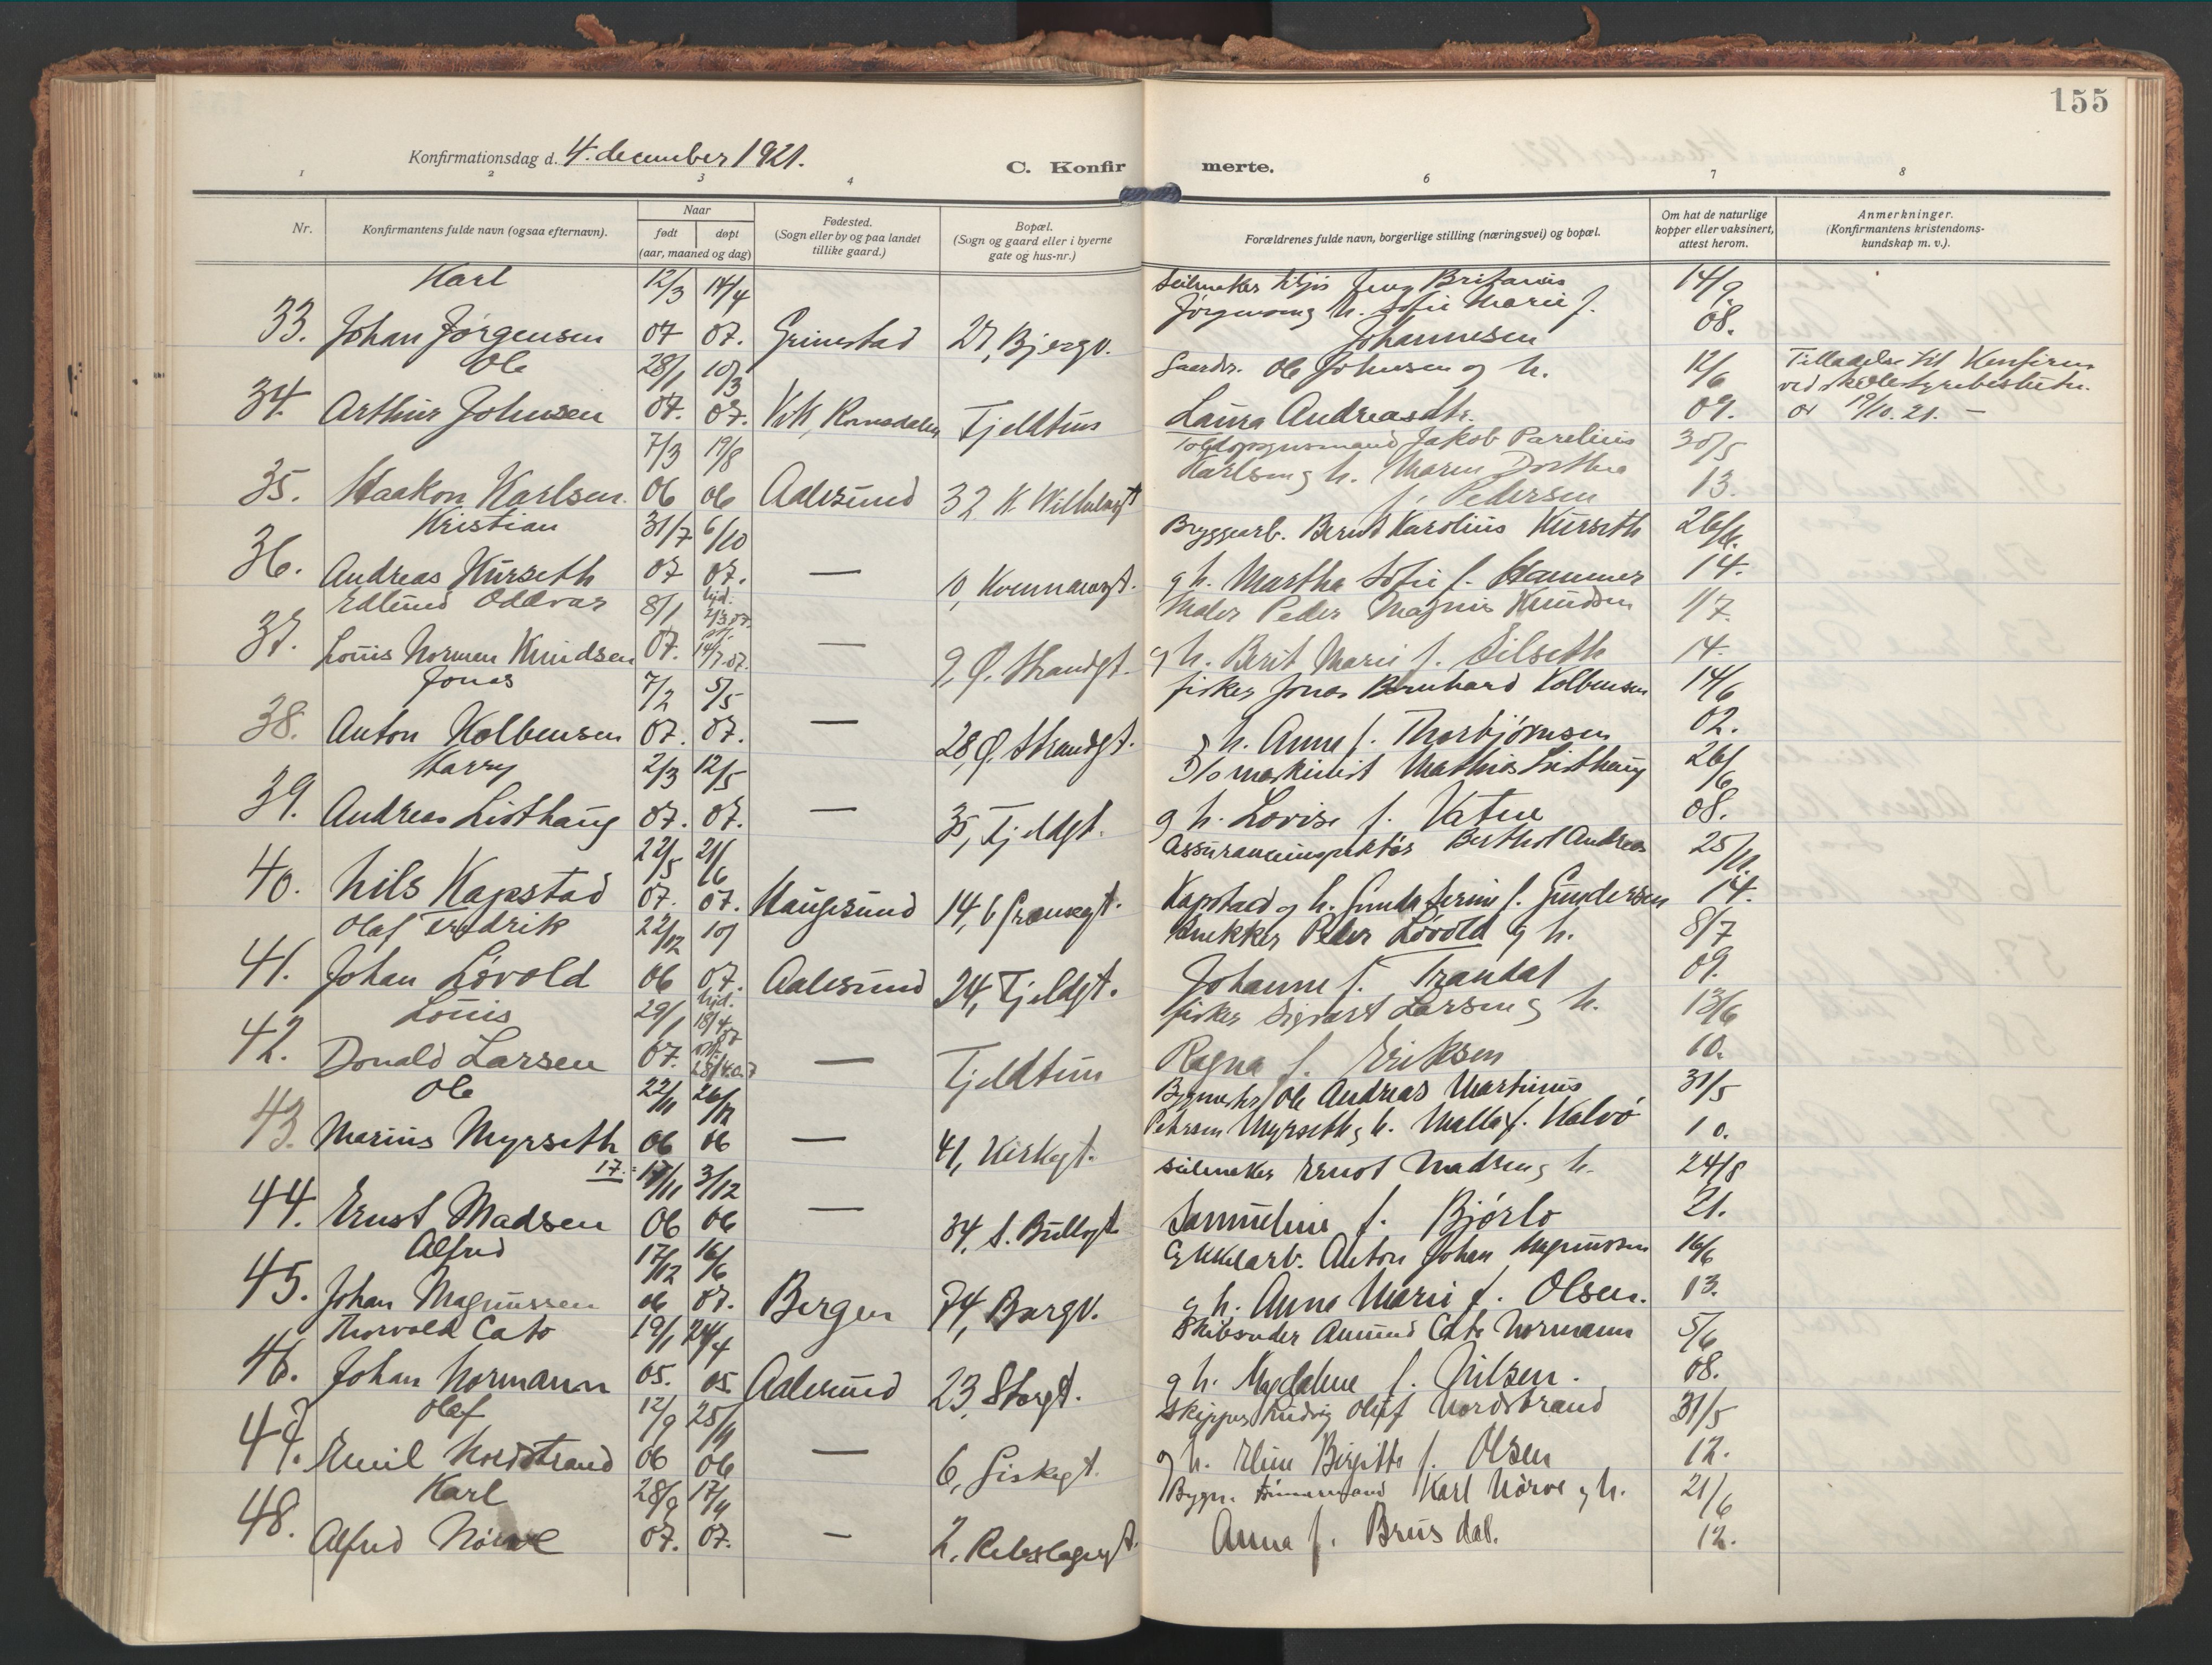 155
Konfirmationsdag d. 4. december 1921.
C. Konfirmerte.
1 2 3 4 6 7 8
Nr.
Konfirmantens fulde navn (ogsaa efternavn).
Naar
født døpt
(aar, maaned og dag)
Fødested.
(Sogn eller by og paa landet
tillike gaard.)
Bopæl.
(Sogn og gaard eller i byerne
gate og hus-nr.)
Forældrenes fulde navn, borgerlige stilling (næringsvei) og bopæl.
Om hat de naturlige
kopper eller vaksinert,
attest herom.
Anmerkninger.
(Konfirmantens kristendoms-
kundskap m. v.).
Karl 12/3 14/4 14/9.
33. Johan Jørgensen 07 07. Grimstad 27, Bjergv. Jørgensen g h. Sofie Marie f. Johannesen 08.
Ole 28/1 10/3 Gaardbr. Ole Johnsen og h. 12/6 Tilladelse til Konfirm
34. Arthur Johnsen 07. 07. Vik, Romsdalen Fjeldtun Laura Andreasdtr. 09. ved skolestyrebeslutn. av 19/10. 21. —
7/3 19/8 Toldopsynsmand Jakob Parelius 30/5
35. Haakon Karlsen. 06 06 Aalesund 32 K. Wilhelmsgt Karlsen g h. Maren Dorthea f. Pedersen 13.
Kristian 31/7 6/10 Bryggearb. Bernt Karolius Kurseth 26/6.
36. Andreas Kurseth 07 07. — 10, Kvennavgt. g h. Martha Sofie f. Hammer 14.
Edlund Oddvar 8/1 hjd. 2/3 07. Maler Peder Magnus Knudsen 1/7.
37. Louis Normen Knudsen 07. 14/7. 07. — 9, Ø. Strandgt. g h. Berit Marie f. Eilseth 14.
Jonas 7/2 5/5 fisker Jonas Bernhard Kolbensen 14/6
38. Anton Kolbensen 07. 07. — 28, Ø. Strandgt. g h. Anne f. Thorbjørnsen 02.
Harry 2/3 12/5 D/s maskinist Mathias Listhaug 26/6
39. Andreas Listhaug 07. 07. — 35, Fjeldgt. g h. Lovise f. Vatne 08.
22/5 21/6 Assuranceinspektør Berthol Andreas 25/11.
40. Nils Kapstad 07. 07. Haugesund 14, 6 Grensegt. Kapstad og h. Serine f. Gundersen 14.
Olaf Fredrik 22/12 10/ Snekker Peder Løvold g h. 8/7
41. Johan Løvold 06 07. Aalesund 24, Fjeldgt. Johanne f. Trandal 09.
Louis 29/1 hjd. 18/4 07 fisker Sigvart Larsen g h. 13/6
42. Donald Larsen 07. 28/4 07 — Fjeldtun Ragna f. Eriksen 10.
Ole 22/11 26/12 Bygmester Ole Andreas Martinus 31/5
43. Marius Myrseth 06 06 — 41, Kirkegt. Petersen Myrseth g h. Malla f. Kalvø 10.
17. 17/11 3/12 seilmaker Ernst Madsen g h. 24/8
44. Ernst Madsen 06 06 — 34, S. Bullsgt. Samueline f. Bjørlo 21.
Alfred 17/12 16/6 Cykkelarb. Anton Johan Magnussen 16/6
45. Johan Magnussen 06 07. Bergen 74, Borgv. g h. Anna Marie f. Olsen. 13.
Thorvald Cato 19/1 24/4 Skibsreder Amund Cato Normann 5/6
46. Johan Normann 05. 05. Aalesund 23, Storgt. g h. Magdalene f. Nilsen. 08.
Olaf 12/9 25/11 Skipper Ludvig Oluf Nordstrand 31/5
47. Emil Nordstrand 06 06 — 6, Giskegt. g h. Eline Birgitte f. Olsen 12.
Karl 28/9 17/11 Bygn. tømmermand Karl Nørve g h. 21/6
48. Alfred Nørve 07. 07. — 2, Rebslagergt. Anna f. Brusdal. 12.